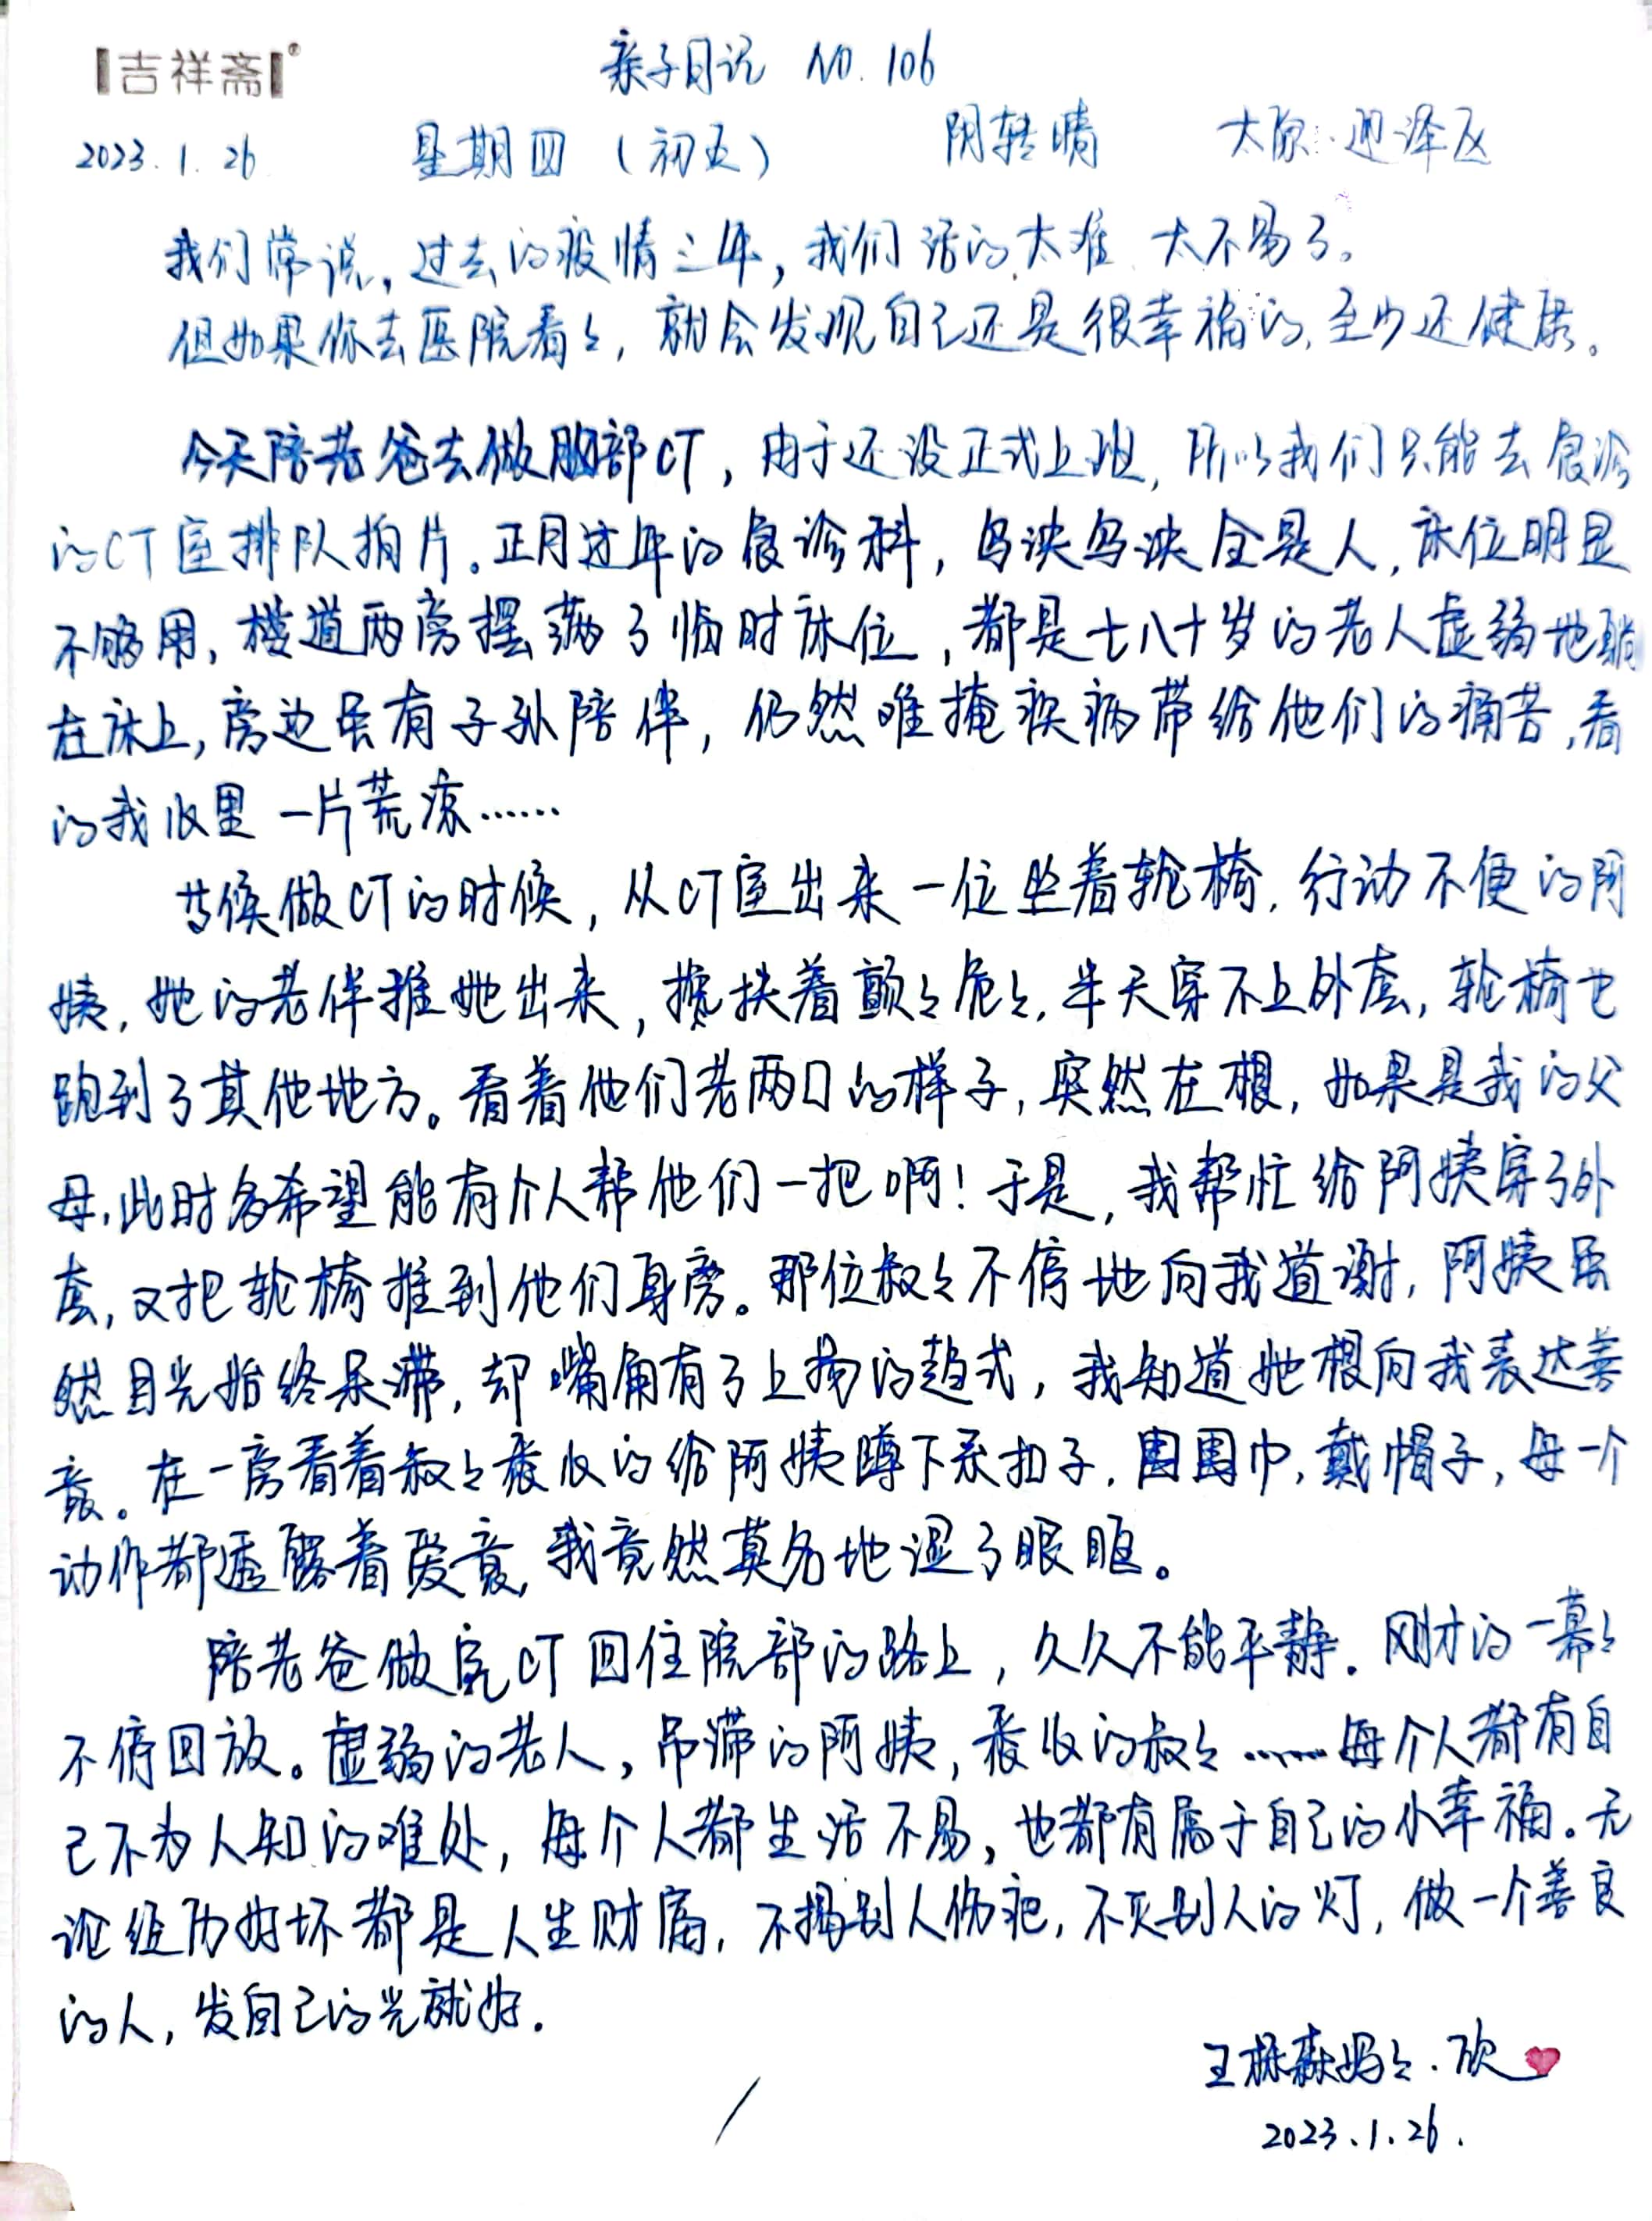 吉祥斋®
亲子日记 NO. 106
2023.1.26 星期四（初五） 阴转晴 太原·迎泽区
我们常说，过去的疫情三年，我们活的太难、太不易了。
但如果你去医院看看，就会发现自己还是很幸福的，至少还健康。
今天陪老爸去做胸部CT，由于还没正式上班，所以我们只能去急诊
的CT室排队拍片。正月过年的急诊科，乌泱乌泱全是人，床位明显
不够用，楼道两旁摆满了临时床位，都是七八十岁的老人虚弱地躺
在床上，旁边虽有子孙陪伴，仍然难掩疾病带给他们的痛苦，看
的我心里一片荒凉……
等候做CT的时候，从CT室出来一位坐着轮椅，行动不便的阿
姨，她的老伴推她出来，搀扶着颤颤危危，半天穿不上外套，轮椅也
跑到了其他地方。看着他们老两口的样子，突然在想，如果是我的父
母，此时多希望能有个人帮他们一把啊！于是，我帮忙给阿姨穿了外
套，又把轮椅推到他们身旁。那位叔叔不停地向我道谢，阿姨虽
然目光始终呆滞，却嘴角有了上扬的趋式，我知道她想向我表达善
意。在一旁看着叔叔暖心的给阿姨蹲下系扣子，围围巾，戴帽子，每一个
动作都透露着爱意，我竟然莫名地湿了眼眶。
陪老爸做完CT回住院部的路上，久久不能平静。刚才的一幕幕
不停回放。虚弱的老人，呆滞的阿姨，暖心的叔叔……每个人都有自
己不为人知的难处，每个人都生活不易，也都有属于自己的小幸福。无
论经历好坏都是人生财富，不揭别人伤疤，不灭别人的灯，做一个善良
的人，发自己的光就好。
王栎森妈妈·欣
2023.1.26.